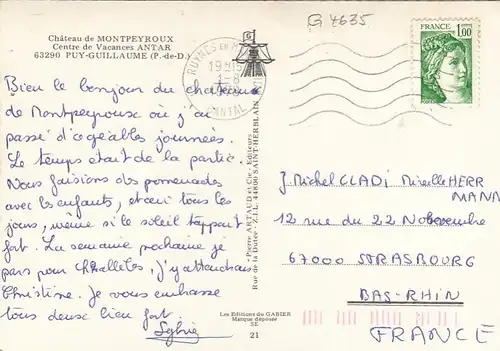 Château de MONTPEYROUX
Centre de Vacances ANTAR
63290 PUY-GUILLAUME (P.-de-D.)
G 4635
RUYNES EN M
19H
1-8
CANTAL
FRANCE
1,00
POSTES
Bien le bonjour du château
de Montpeyroux où j'ai
passé d'agréables journées.
Le temps était de la partie.
Nous faisions des promenades
avec les enfants, et ceci tous les
jours, même si le soleil tappait
fort. La semaine prochaine je
pars pour Challelles, j'y attendrai
Christine. Je vous embrasse
tous deux bien fort.
Sylvie
Pierre ARTAUD et Cie - Editeurs
Rue de la Dutée - Z.I.L. 44800 SAINT-HERBLAIN
J. Michel CLADI Mireille HERR
MANN
12 rue du 22 Novembre
67000 STRASBOURG
BAS-RHIN
FRANCE
Les Editions du GABIER
Marque déposée
SE
21